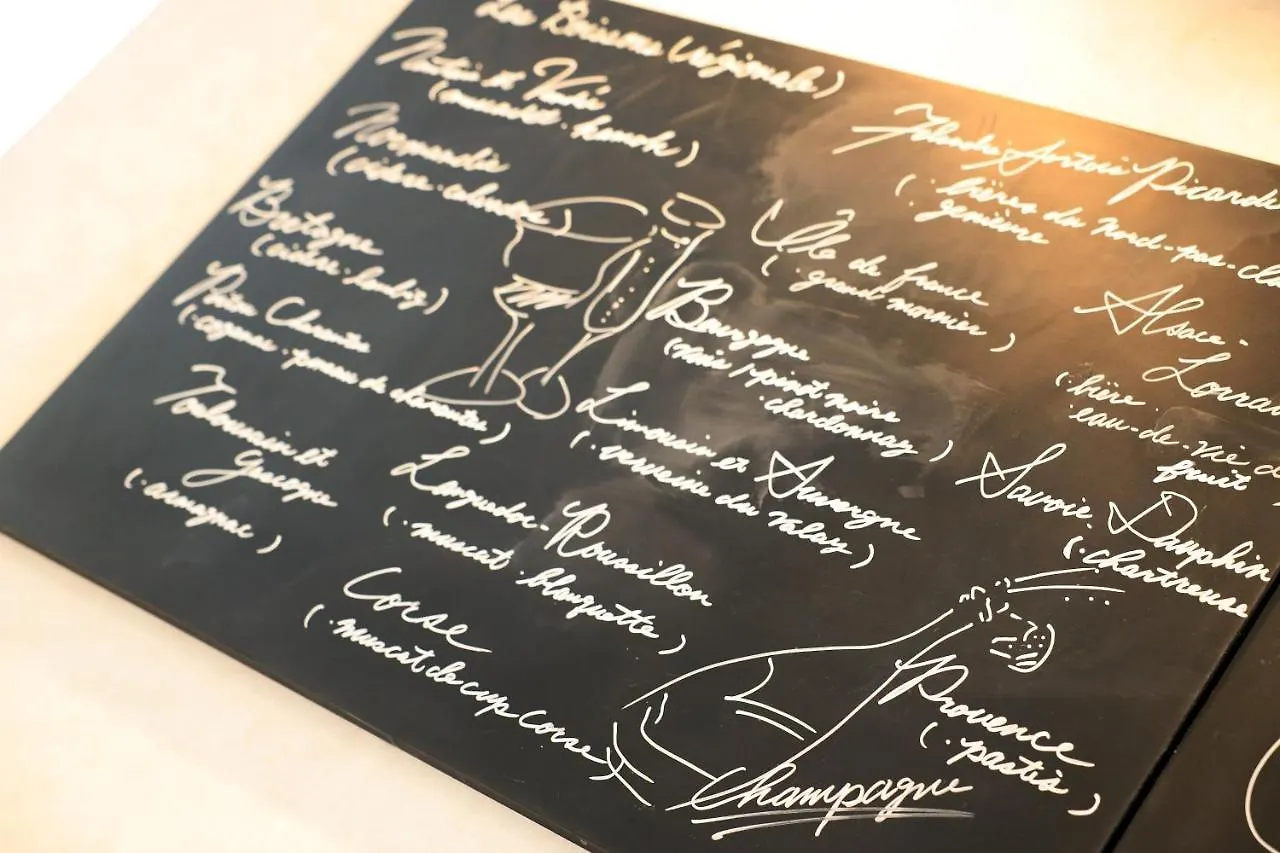 Les Boissons (régionale)
Nantais et Vendée
(muscadet · kamok)
Normandie
(cidre · calvados)
Bretagne
(cidre · lambig)
Poitou Charentes
(cognac · pineau de charentes)
Toulousain et
Gascogne
(· armagnac)
Languedoc-Roussillon
(· muscat · blanquette)
Corse
(· muscat de cap corse)
Artois Picardie
(· bières du Nord-pas-
· genièvre
Île de france
(· grand marnier)
Bourgogne
pinot noire
chardonnay)
Limousin et Auvergne
(· verveine du Velay)
Alsace-
(· bière ·
eau-de-vie
fruit
Savoie · Dauphin
(· chartreuse
Provence
(· pastis)
Champagne